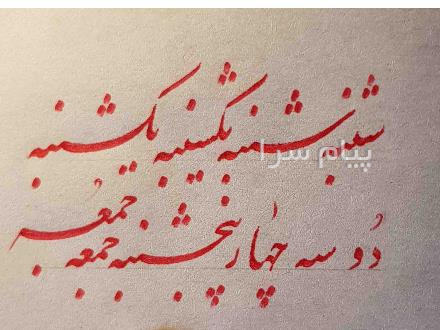 شنبه شنبه یکشنبه یکشنبه
پیام سرا
دو سه چهار پنجشنبه جمعه جمعه